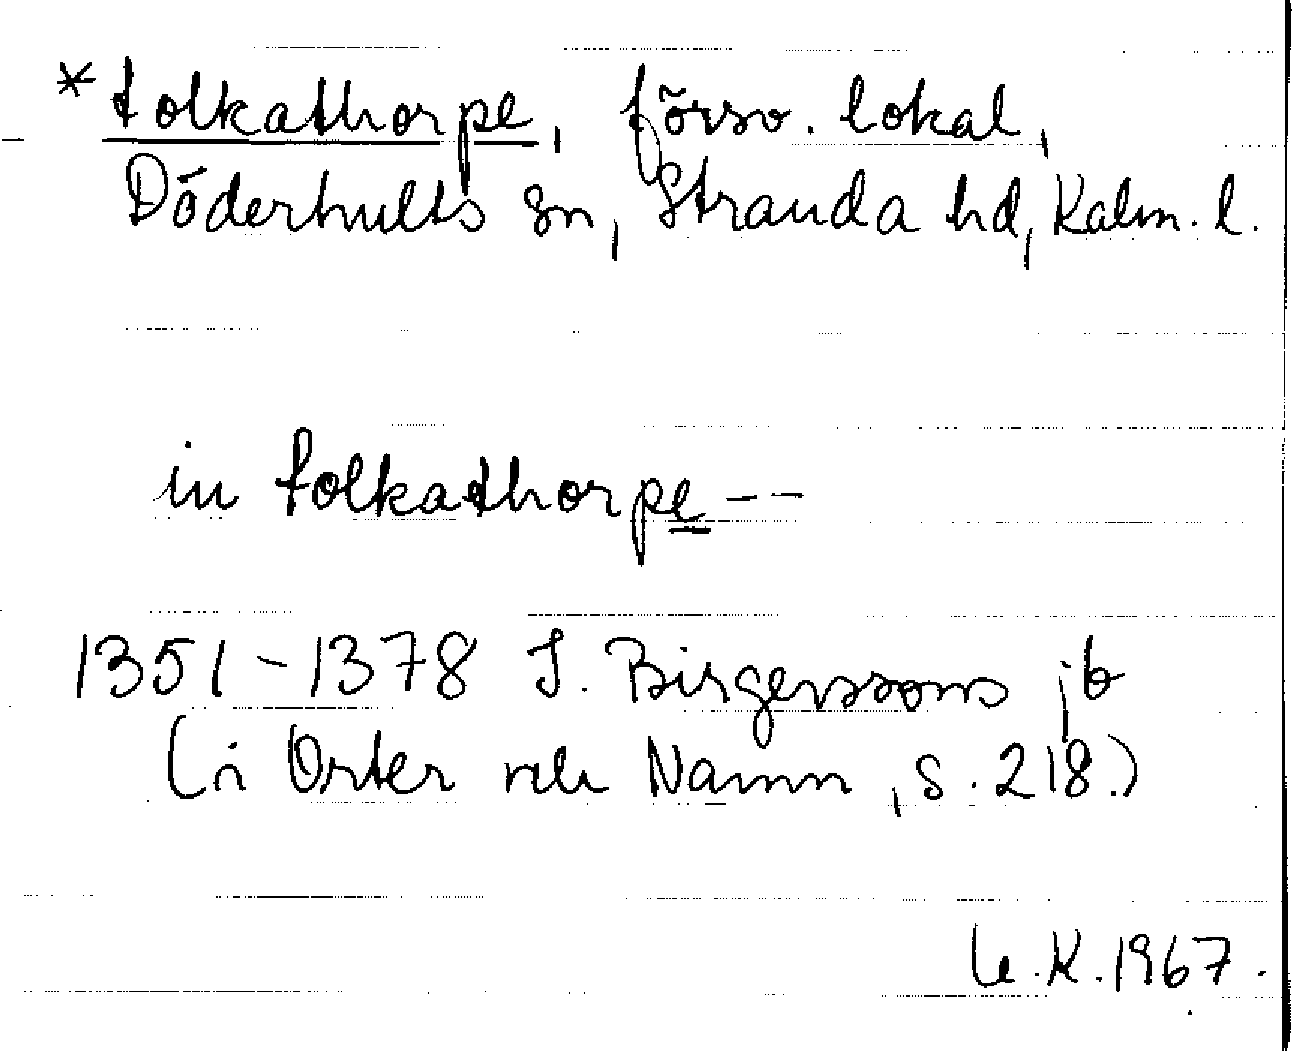 *folkathorpe, försv. lokal,
Döderhults sn, Stranda hd, Kalm. l.
in folkathorpe --
1351-1378 J. Birgerssons jb
(i Orter och Namn, s. 218.)
K. 1967.